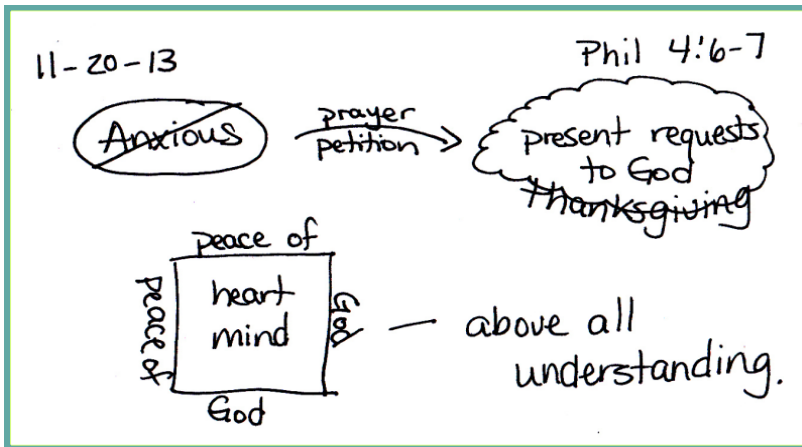 11-20-13
Phil 4:6-7
Anxious
prayer
petition
present requests
to God
thanksgiving
peace of
peace of
heart
mind
God
God
— above all
understanding.